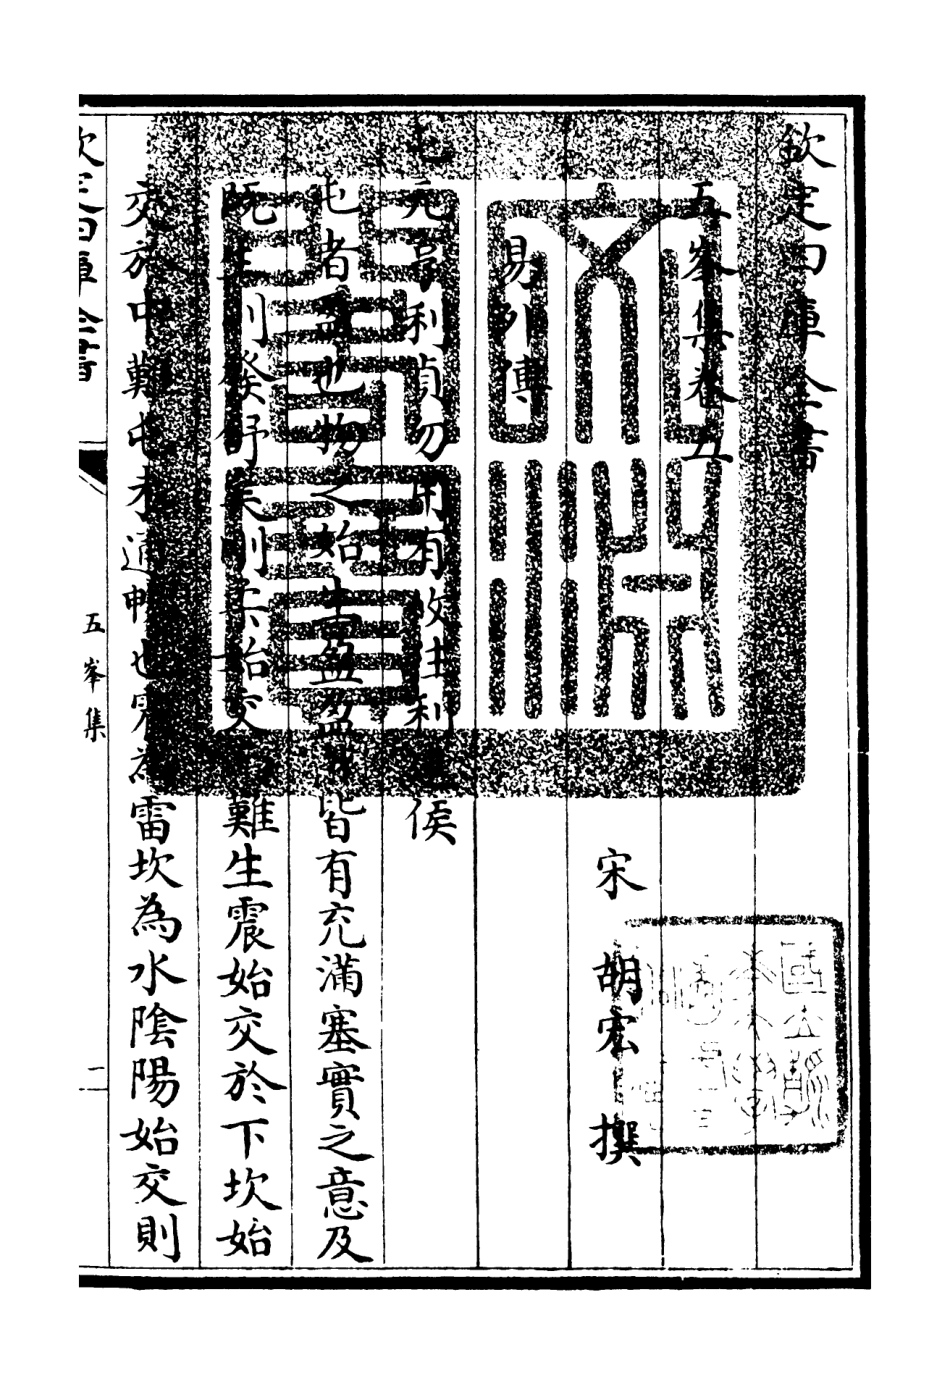 欽定四庫全書
五峯集卷五
宋 胡宏 撰
易外傳
屯元亨利貞勿用有攸往利建侯
屯者盈也物之始生盈盈皆有充滿塞實之意及
既生則發舒矣剛柔始交難生震始交於下坎始
交於中難屯未通暢也震為雷坎為水陰陽始交則
欽定四庫全書
五峯集